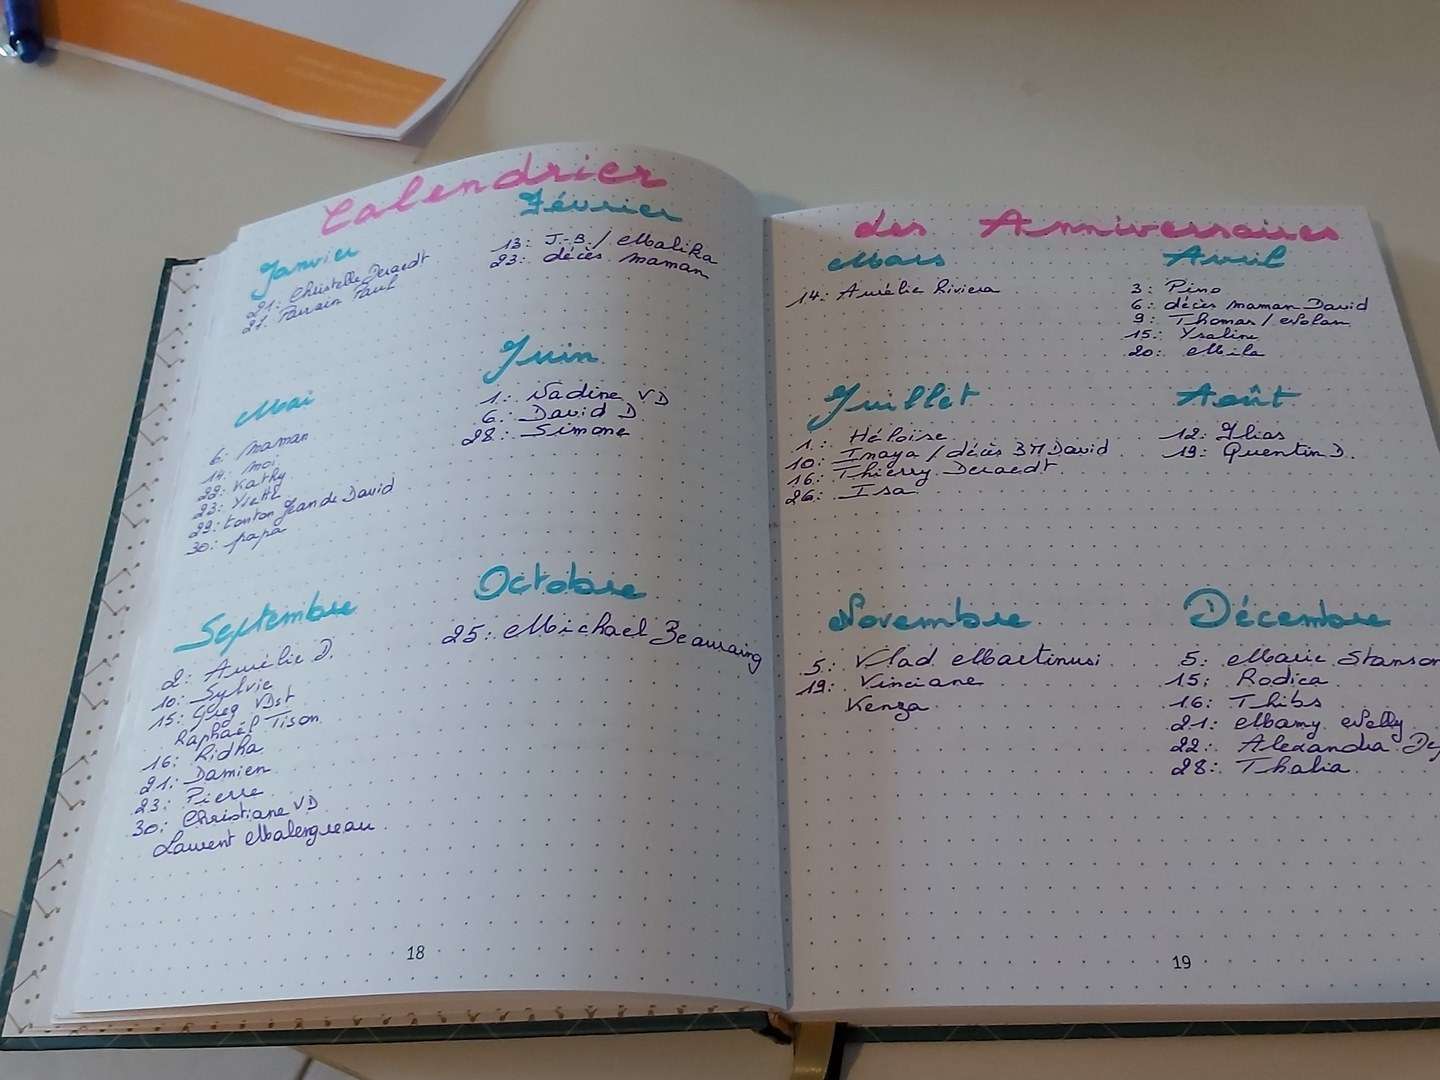 Calendrier
Janvier
21: Christelle Deraedt
27: Parrain Paul
Février
13: J.-B. / Malika
23: décès maman
Mai
6: maman
14: moi
22: Kathy
23: Yvette
29: tonton Jean de David
30: papa
Juin
1: Nadine VD
6: David D
28: Simone
Septembre
2: Aurélie D.
10: Sylvie
15: Greg VDst
Raphaël Tison
16: Ridha
21: Damien
23: Pierre
30: Christiane VD
Laurent Malengreau
Octobre
25: Michael Beauraing
18
des Anniversaires
Mars
14: Aurélie Riviera
Avril
3: Pino
6: décès maman David
9: Thomas / Nolan
15: Ysaline
20: Mila
Juillet
1: Héloïse
10: Inaya / décès BM David
16: Thierry Deraedt
26: Isa
Août
12: Ilias
19: Quentin D.
Novembre
5: Vlad Martinusi
19: Vinciane
Kenza
Décembre
5: Marie Stanson
15: Rodica
16: Thibs
21: Mamy Nelly
22: Alexandra
28: Thalia
19